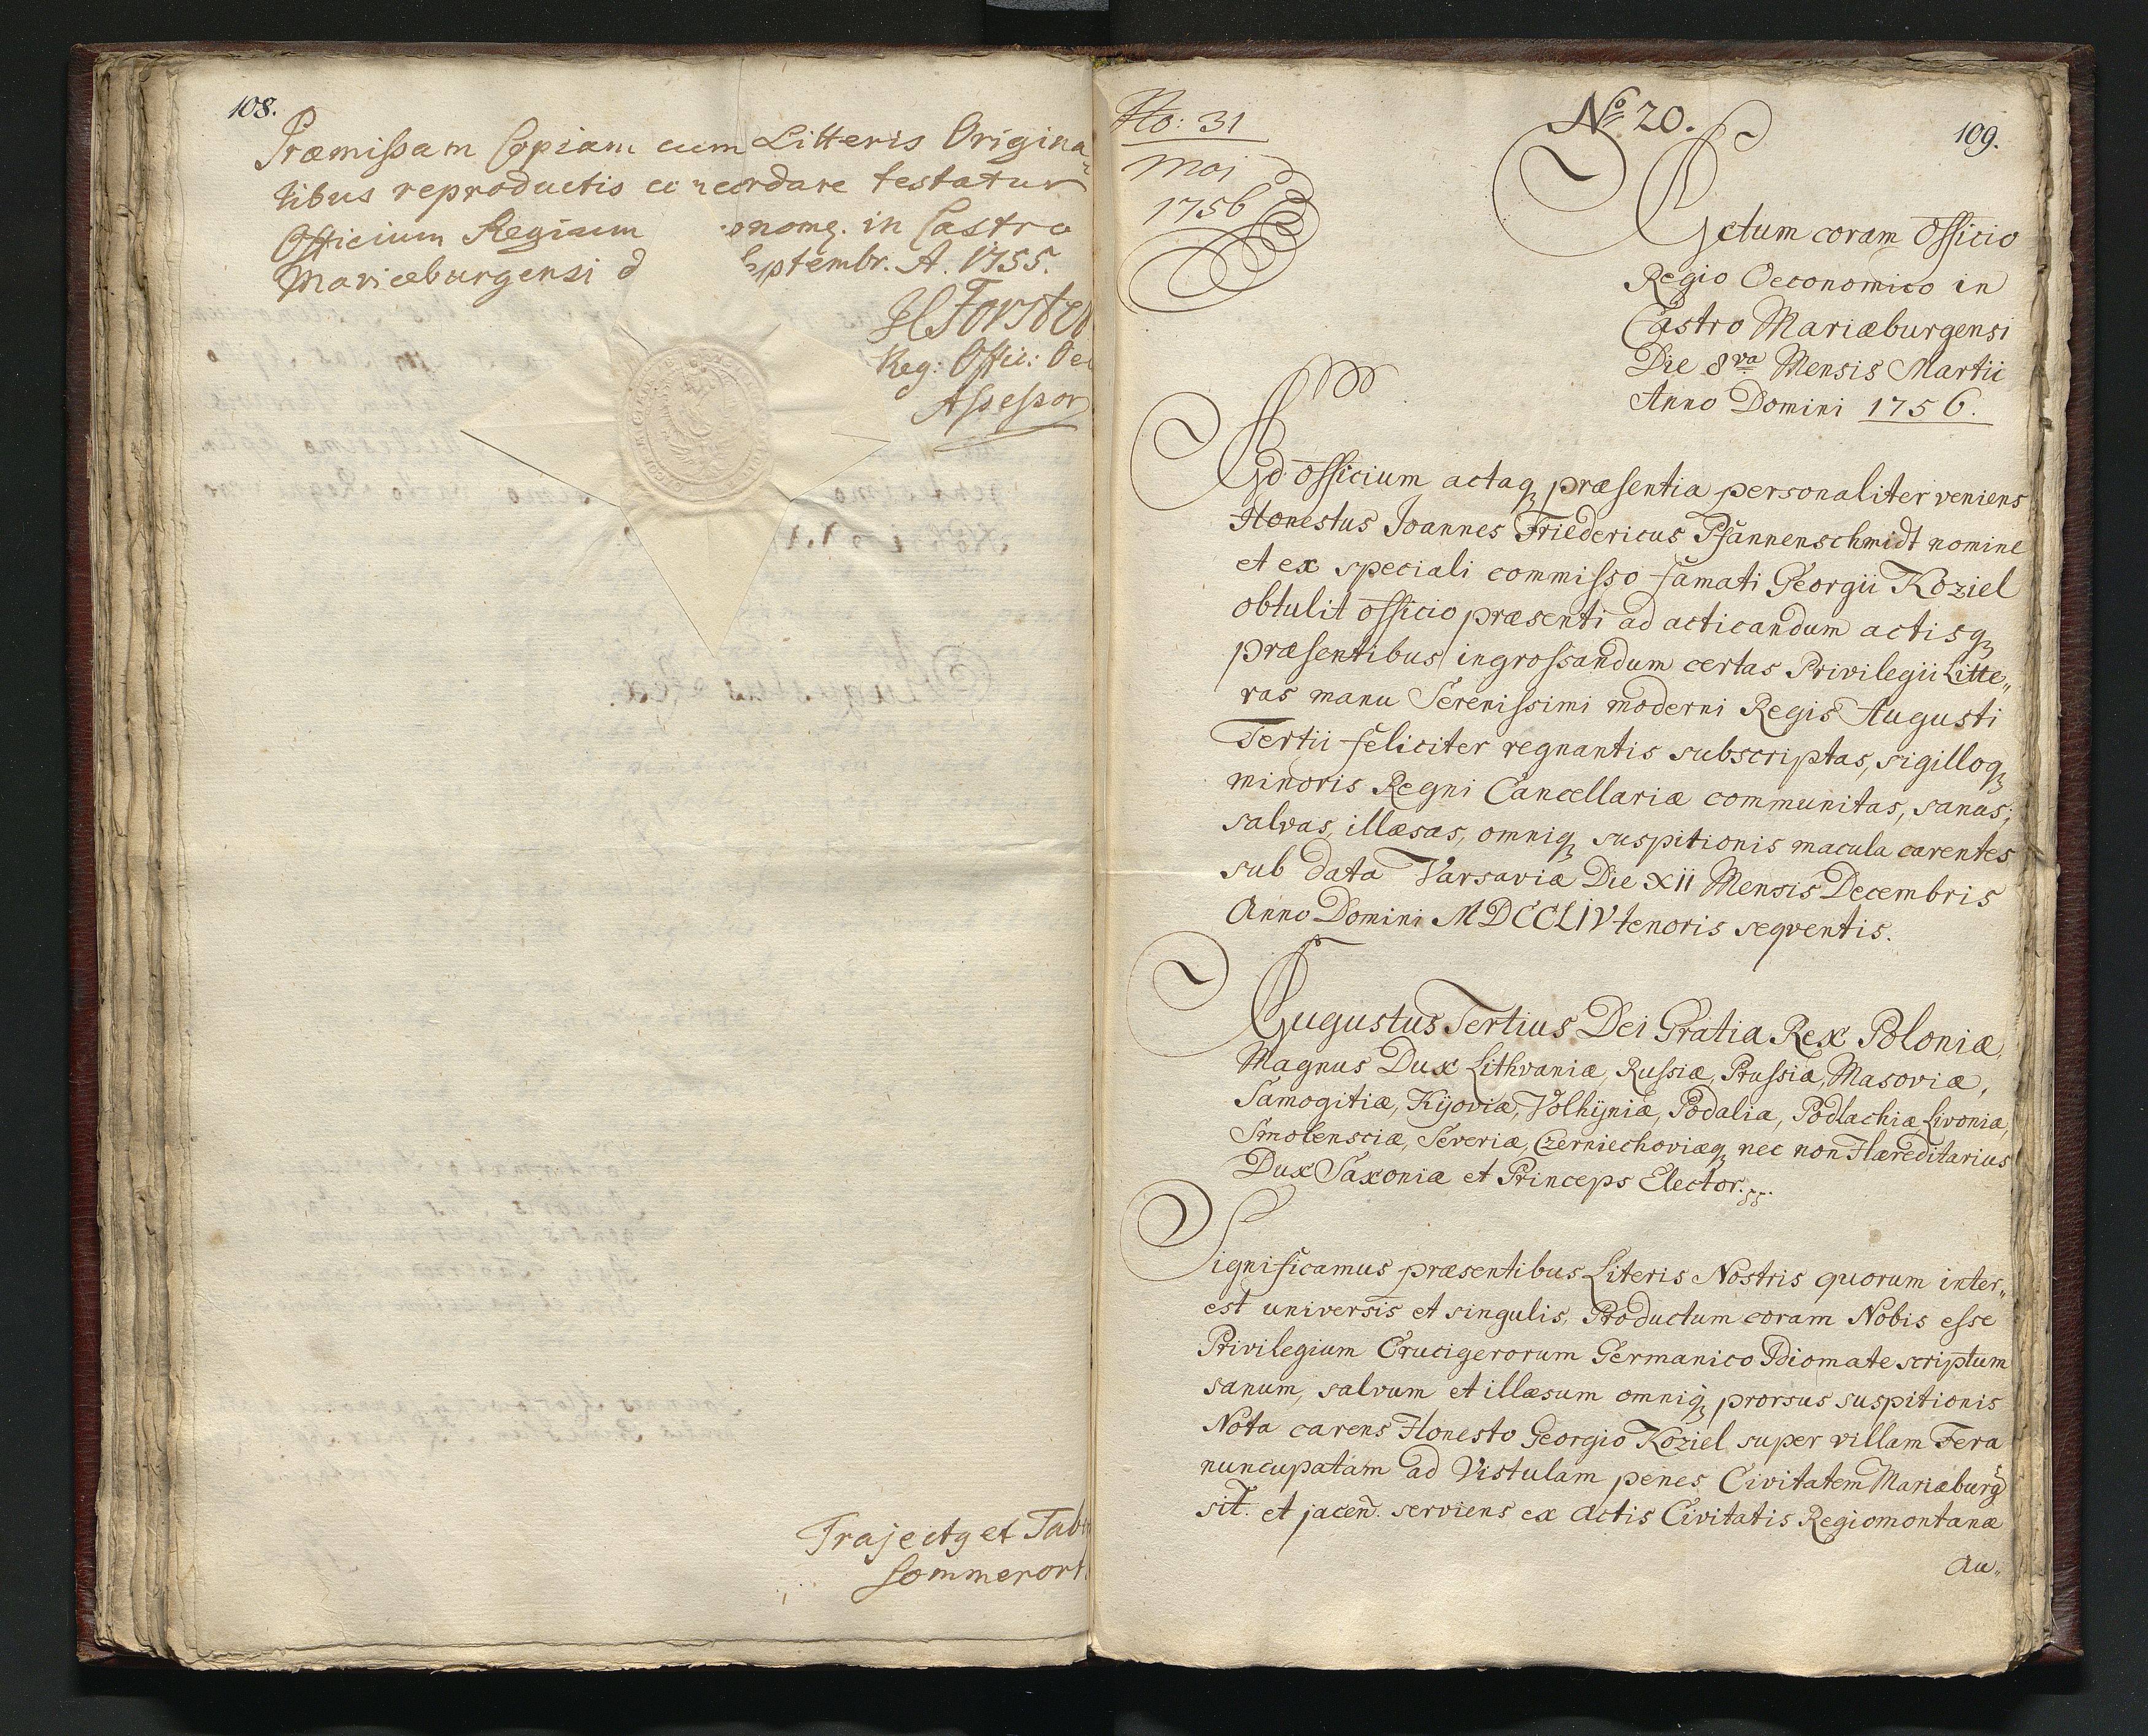 108.
Præmissam Copiam cum Litteris Origina-
libus reproductis concordare testatur
Officium Regium onomq. in Castro
Mariæburgensi d eptembr. A. 1755.
Forster
Reg: Offic: Oec
Assessor
Trajectq et Tab
Sommerort
No: 31
Maj
1756
No. 20.
109.
Actum coram Officio
Regio Oeconomico in
Castro Mariæburgensi
Die 8va Mensis Martii
Anno Domini 1756.
Ad Officium actaq præsentia personaliter veniens
Honestus Joannes Friedericus Pfannenschmidt nomine
et ex speciali commisso famati Georgii Koziel
obtulit officio præsenti ad acticandum actisq
præsentibus ingrossandum certas Privilegii Litte„
ras manu Serenissimi moderni Regis Augusti
Tertii feliciter regnantis subscriptas, sigilloq
minoris Regni Cancellariæ communitas, sanas,
salvas, illæsas, omniq suspitionis macula carentes
sub data Varsaviæ Die XII Mensis Decembris
Anno Domini MDCCLIV tenoris seqventis.
Augustus Tertius Dei Gratia Rex Poloniæ,
Magnus Dux Lithvaniæ, Russiæ, Prussiæ, Masoviæ,
Samogitiæ, Kijoviæ, Volhijniæ, Podaliæ, Podlachiæ Livoniæ,
Smolensciæ, Severiæ, Czerniechoviæq nec non Hæreditarius
Dux Saxoniæ et Princeps Elector.
Significamus præsentibus Literis Nostris quorum inter„
est universis et singulis, Productum coram Nobis esse
Privilegium Crucigerorum Germanico Idiomate scriptum
sanum, salvum et illæsum omniq prorsus suspitionis
Nota carens Honesto Georgio Koziel super villam Fera
nuncupatam ad Vistulam penes Civitatem Mariæburg
sit. et jacen. serviens ex Actis Civitatis Regiomontanæ
au„